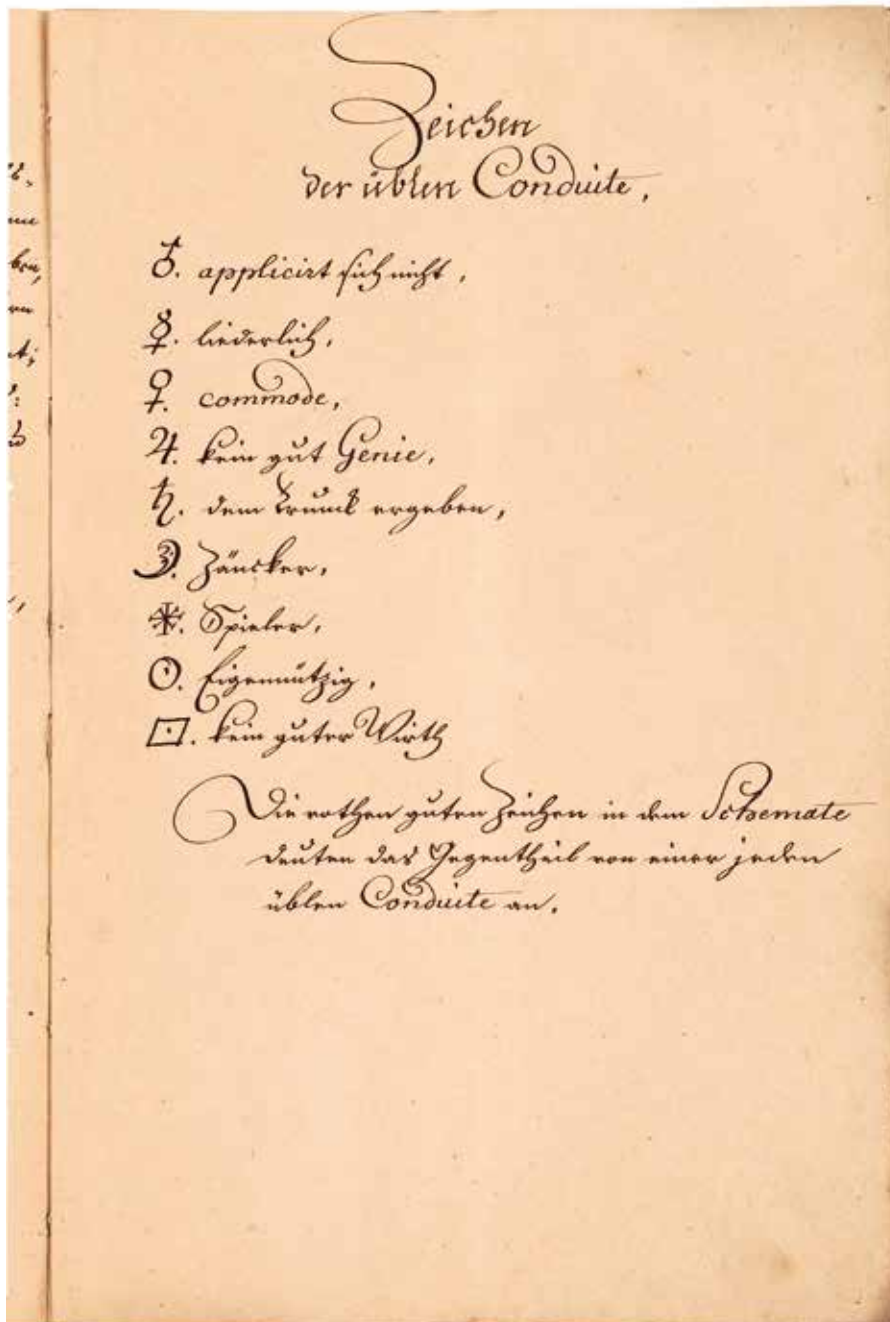 Zeichen
der üblen Conduite,
♁. applicirt sich nicht,
☿. liederlich,
♀. commode,
♃. kein gut Genie,
♄. dem Trunck ergeben,
☽. Zäncker,
✳. Spieler,
☉. Eigennützig,
⊡. kein guter Wirth
Die rothen guten Zeichen in dem Schemate
deuten das Gegentheil von einer jeden
üblen Conduite an.